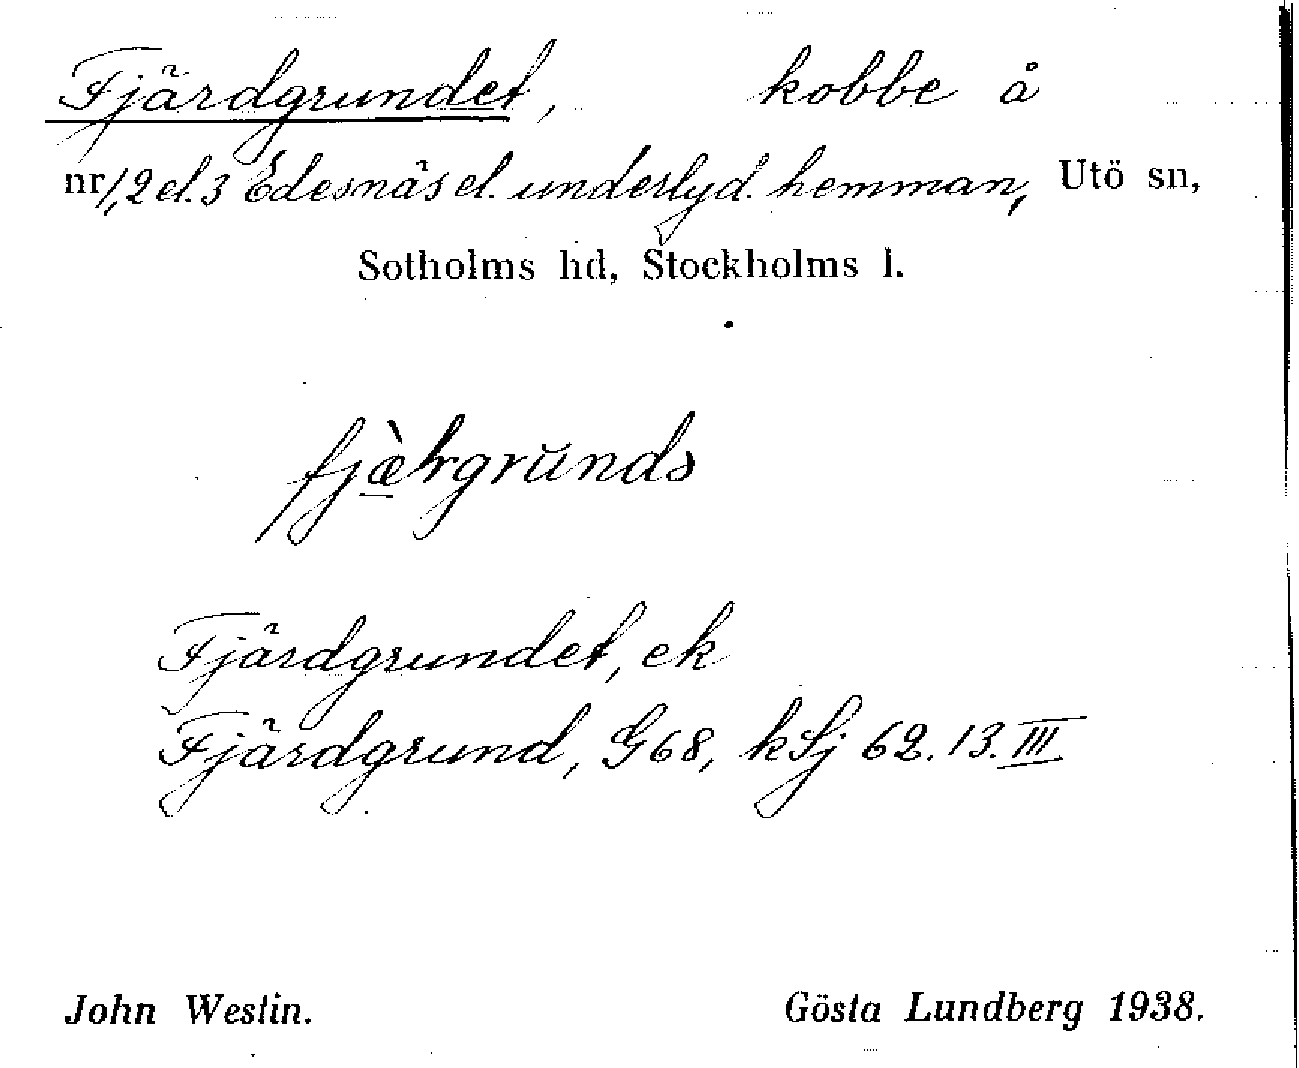 Fjärdgrundet, kobbe å
nr 1, 2 el. 3 Edesnäs el. underlyd. hemman, Utö sn,
Sotholms hd, Stockholms l.
Fjärdgrundet, ek
Fjärdgrund, G68, kSj 62.13.III
John Westin. Gösta Lundberg 1938.